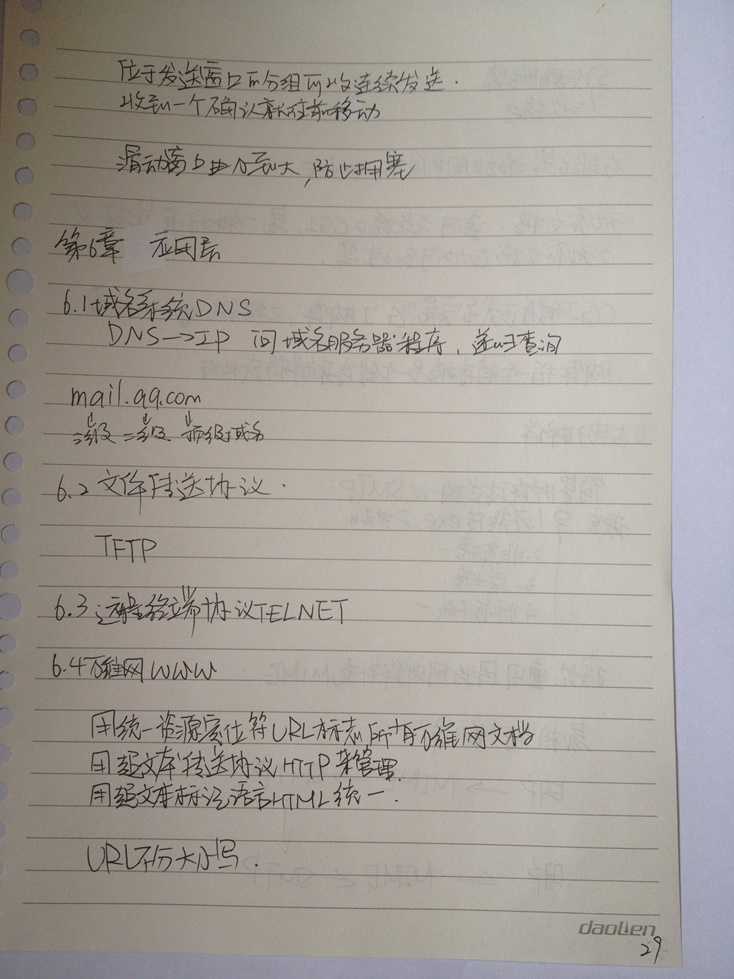 位于发送窗口的分组可以连续发送.
收到一个确认就往前移动
滑动窗口由小到大,防止拥塞
第6章 应用层
6.1 域名系统DNS
DNS→IP 问域名服务器程序,递归查询
mail.qq.com
三级 二级 顶级域名
6.2 文件传送协议.
TFTP
6.3 远程终端协议TELNET
6.4 万维网WWW
用统一资源定位符URL标志所有万维网文档
用超文本传送协议HTTP来管理.
用超文本标记语言HTML统一.
URL不分大小写.
daolien
29